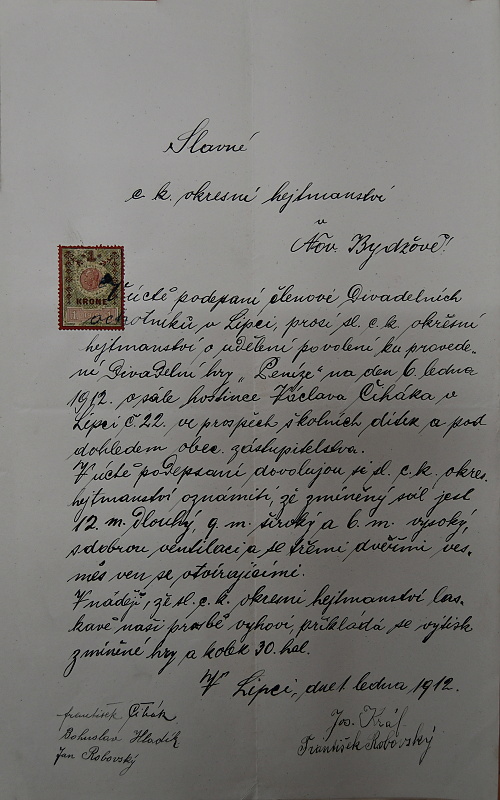 Slavné
c. k. okresní hejtmanství
v
Nov. Bydžově!
1
KRONE
V úctě podepsaní členové Divadelních
ochotníků v Lipci, prosí sl. c. k. okresní
hejtmanství o udělení povolení ku provede-
ní Divadelní hry „Peníze" na den 6. ledna
1912. v sále hostince Václava Čiháka v
Lipci č. 22. ve prospěch školních dítek a pod
dohledem obec. zástupitelstva.
V úctě podepsaní dovolujou si sl. c. k. okres.
hejtmanství oznámiti, zě zmíněný sál jest
12. m. dlouhý, 9. m. široký a 6. m. vysoký,
s dobrou ventilací a se třěmi dveřími ves-
měs ven se otvírajícími.
V náději, zě sl. c. k. okresní hejtmanství las-
kavě naši prosbě vyhoví, přikládá se výtisk
zmíněné hry a kolek 30. hal.
V Lipci, dne 1 ledna 1912.
František Čihák
Bohuslav Hladík
Jan Robovský
Jos. Král
František Robovský